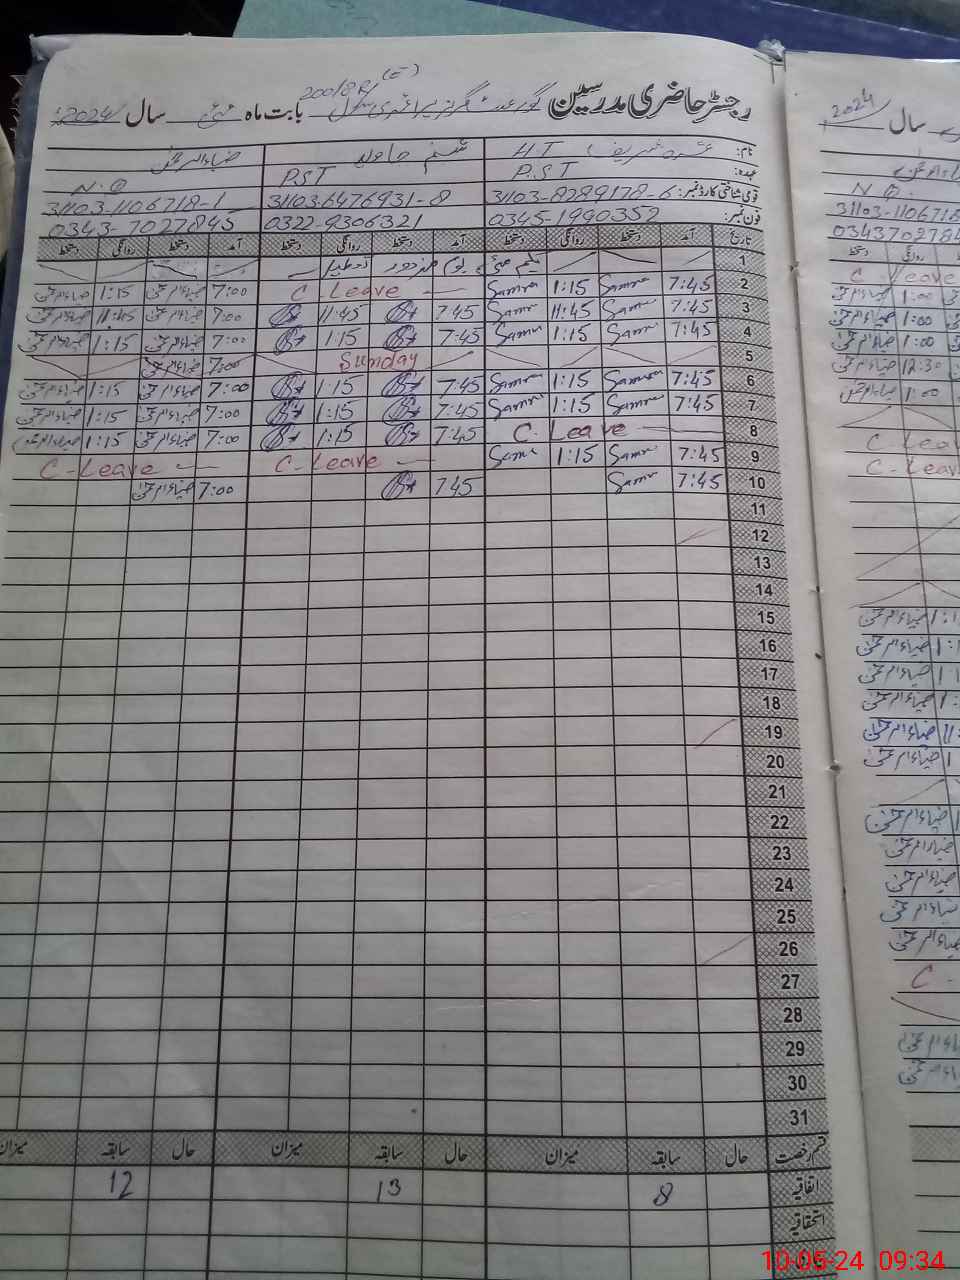 رجسٹر حاضری مدرسین گورنمنٹ گرلز پرائمری سکول 200/8R (E) بابت ماہ مئی سال 2024ء
نام: H.T شبنم جاوید ضیاء الرحمٰن
عہدہ: P.ST P.ST N.Q
قومی شناختی کارڈ نمبر: 31103-8289178-6 31103-6476931-8 31103-1106718-1
فون نمبر: 0345-1990352 0322-9306321 0343-7027845
تاریخ آمد دستخط روانگی دستخط آمد دستخط روانگی دستخط آمد دستخط روانگی دستخط
1 یکم مئی یوم مزدور تعطیل
2 7:45 Samra 1:15 Samra C-Leave 7:00 ضیاء الرحمٰن 1:15 ضیاء الرحمٰن
3 7:45 Samra 11:45 Samra 7:45 11:45 7:00 ضیاء الرحمٰن 11:45 ضیاء الرحمٰن
4 7:45 Samra 1:15 Samra 7:45 1:15 7:00 ضیاء الرحمٰن 1:15 ضیاء الرحمٰن
5 Sunday 7:00 ضیاء الرحمٰن
6 7:45 Samra 1:15 Samra 7:45 1:15 7:00 ضیاء الرحمٰن 1:15 ضیاء الرحمٰن
7 7:45 Samra 1:15 Samra 7:45 1:15 7:00 ضیاء الرحمٰن 1:15 ضیاء الرحمٰن
8 C-Leave 7:45 1:15 7:00 ضیاء الرحمٰن 1:15 ضیاء الرحمٰن
9 7:45 Samra 1:15 Samra C-Leave C-Leave
10 7:45 Samra 7:45 7:00 ضیاء الرحمٰن
11
12
13
14
15
16
17
18
19
20
21
22
23
24
25
26
27
28
29
30
31
قسم رخصت حال سابقہ میزان حال سابقہ میزان حال سابقہ میزان
اتفاقیہ 8 13 12
استحقاقیہ
سال 2024
N.Q.
31103-110671
034370278
روانگی دستخط
C-Leave
1:00 ضیاء الرحمٰن
1:00 ضیاء الرحمٰن
1:00 ضیاء الرحمٰن
12:30 ضیاء الرحمٰن
1:00 ضیاء الرحمٰن
C-Lea
C-Lea
ضیاء الرحمٰن
ضیاء الرحمٰن
ضیاء الرحمٰن
ضیاء الرحمٰن
ضیاء الرحمٰن
ضیاء الرحمٰن
ضیاء الرحمٰن
ضیاء الرحمٰن
ضیاء الرحمٰن
ضیاء الرحمٰن
ضیاء الرحمٰن
C-
ضیاء الرحمٰن
ضیاء الرحمٰن
10-05-24 09:34